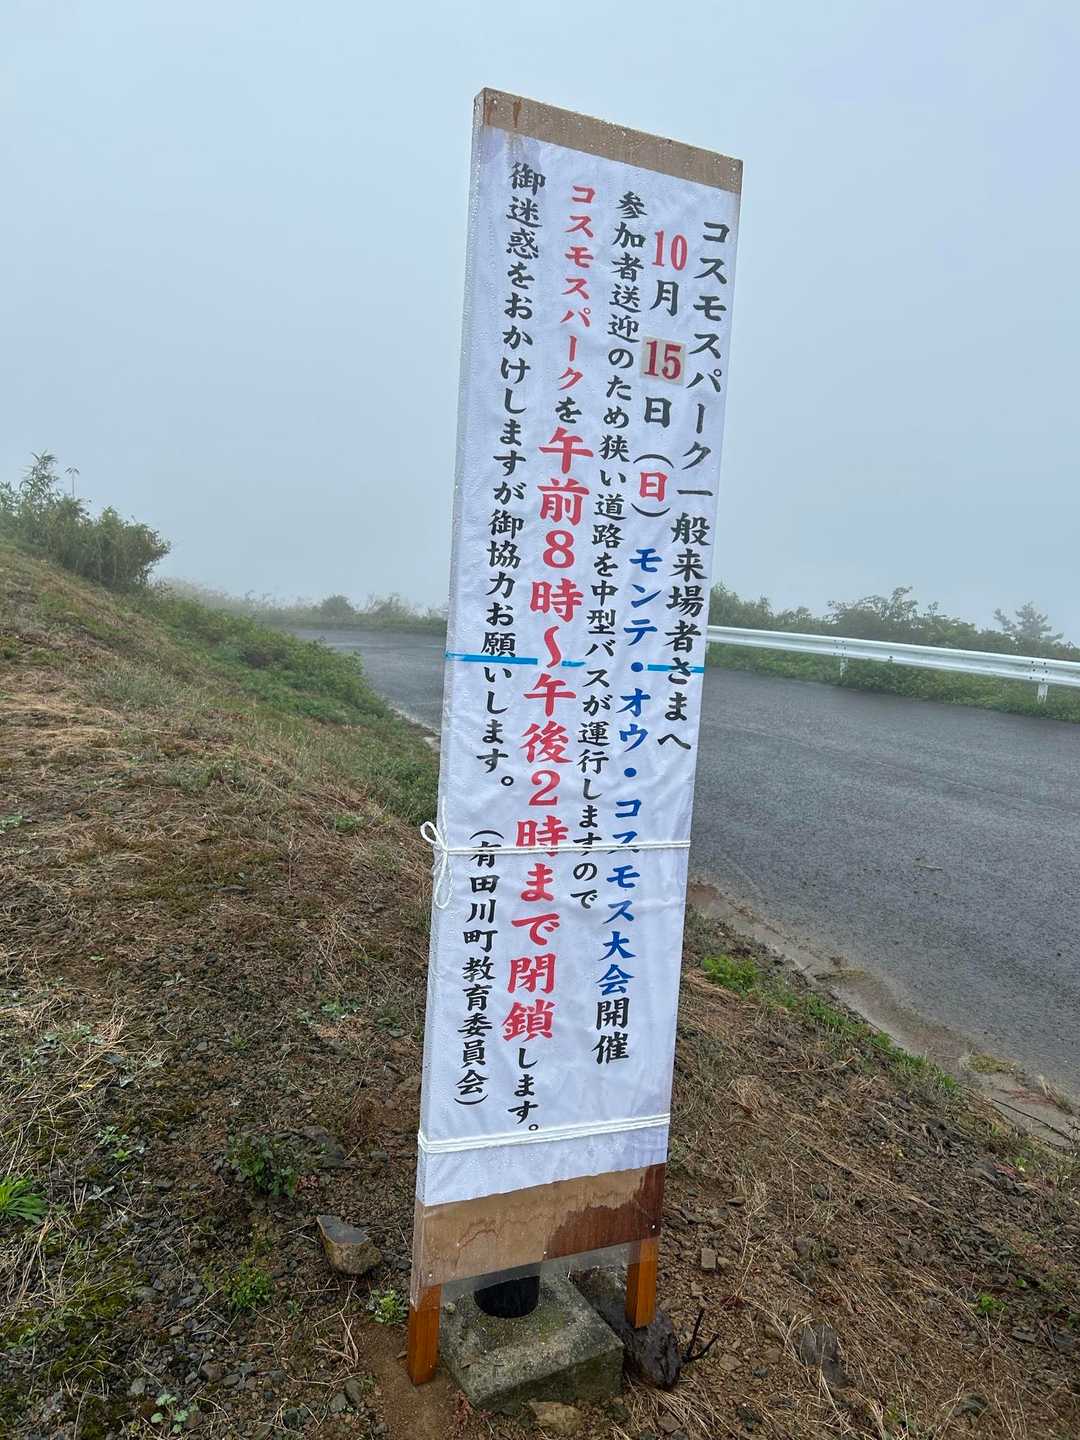 コスモスパーク一般来場者さまへ
10月15日(日)モンテ・オウ・コスモス大会開催
参加者送迎のため狭い道路を中型バスが運行しますので
コスモスパークを午前8時〜午後2時まで閉鎖します。
御迷惑をおかけしますが御協力お願いします。
(有田川町教育委員会)